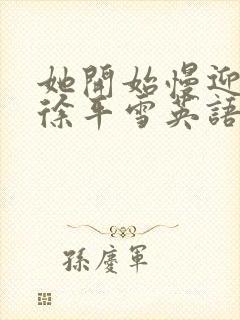 她開始慢迎
徐平雪英語
孫慶軍